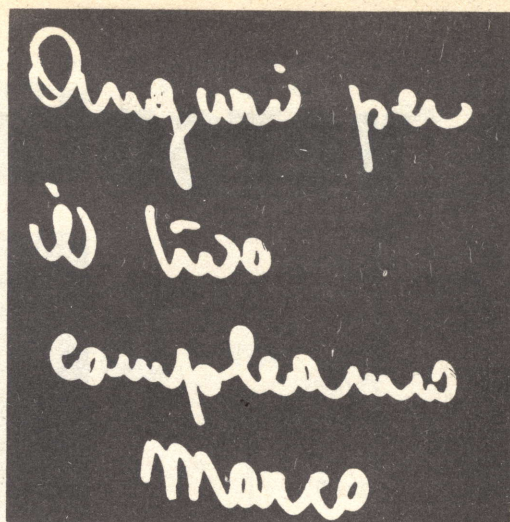 Auguri per
il tuo
compleanno
Marco